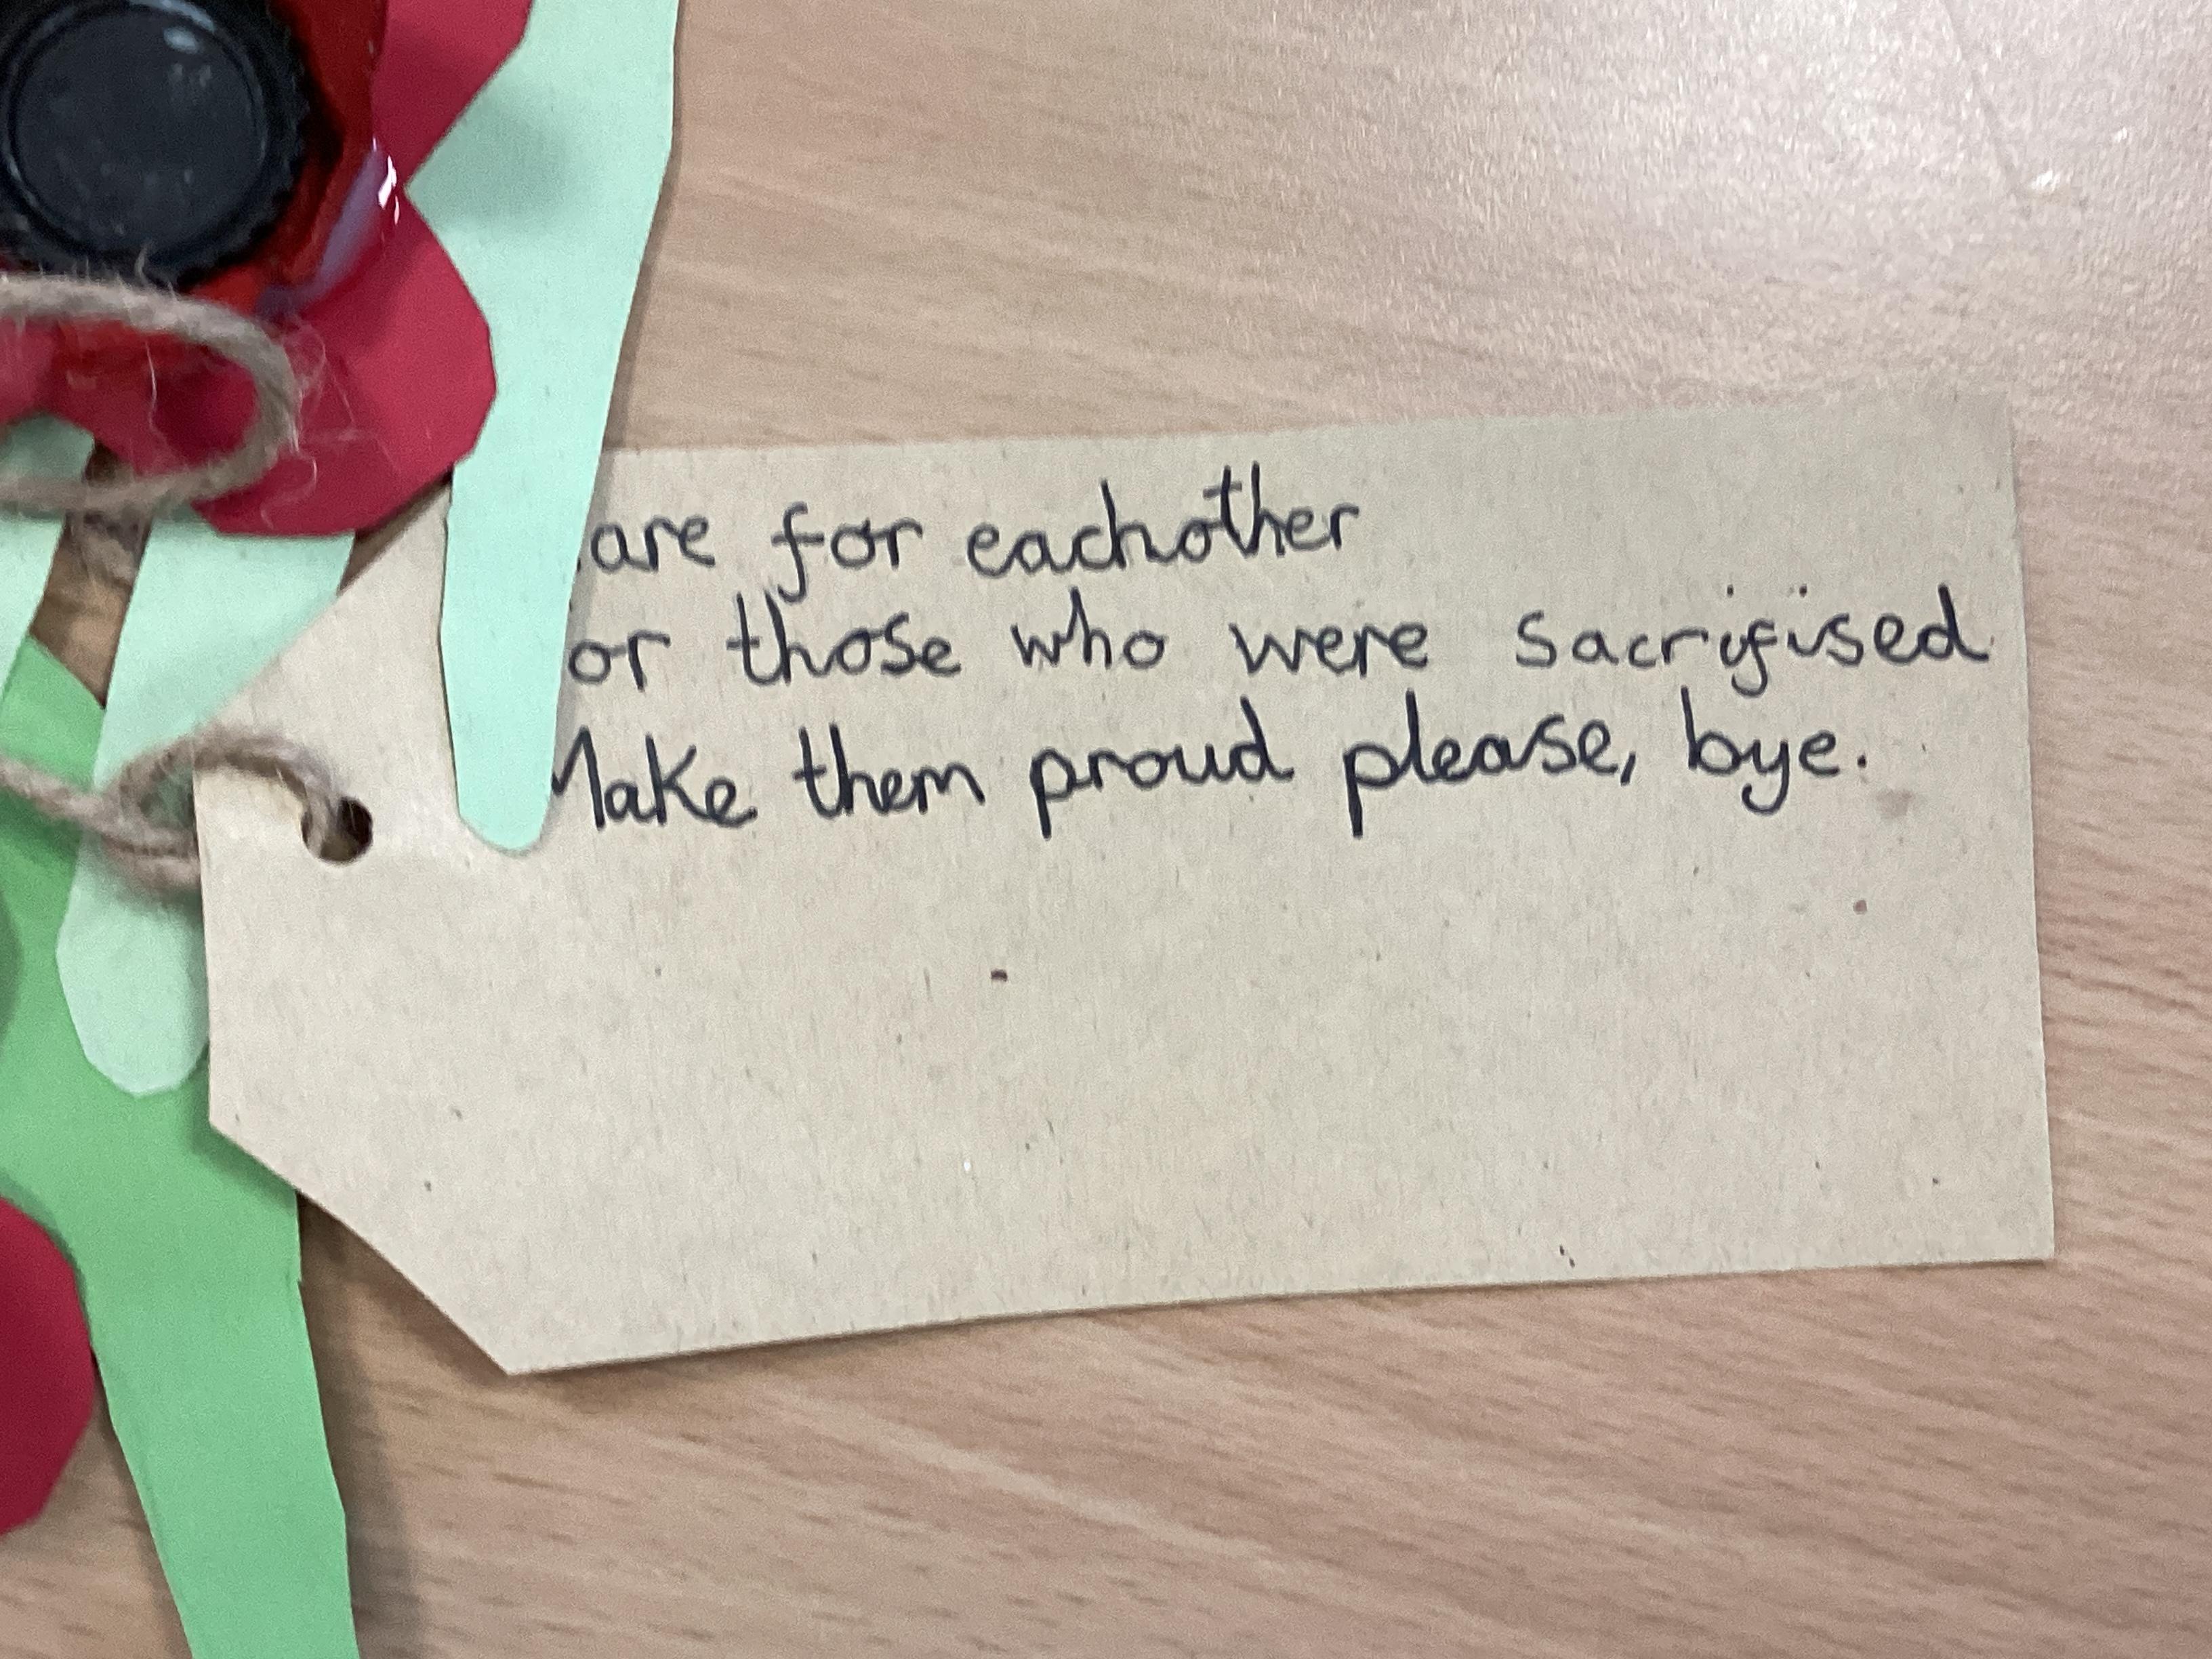 are for eachother
or those who were sacrifised
Make them proud please, bye.